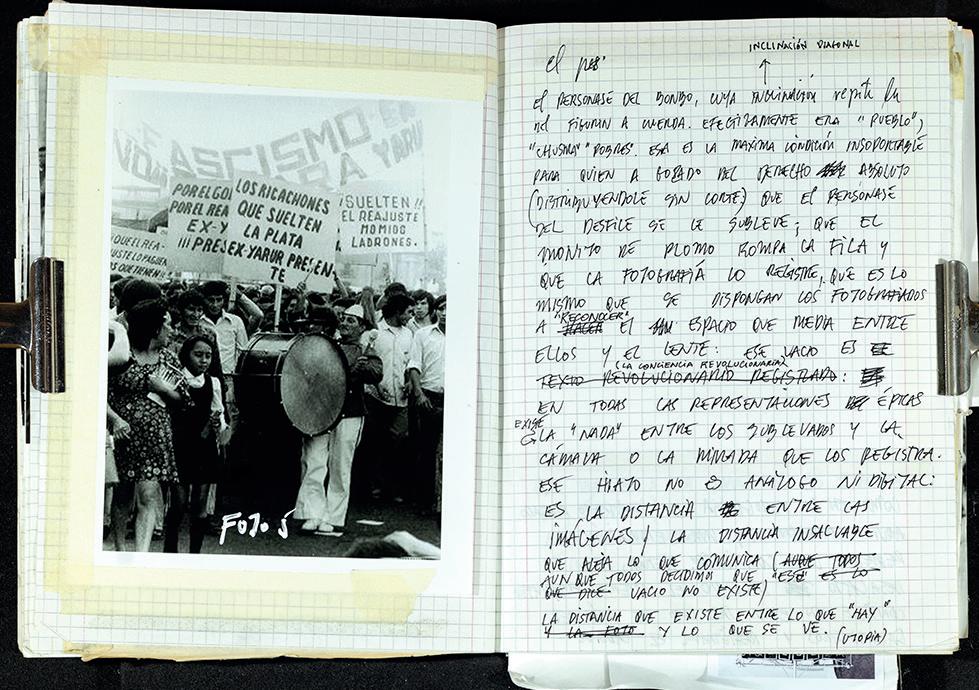 FASCISMO
YARU
POR EL GO
POR EL REA
EX-Y
¡¡¡ PRE
LOS RICACHONES
QUE SUELTEN
LA PLATA
EX-YARUR PRESEN-
TE
¡SUELTEN!!
EL REAJUSTE
MOMIOS
LADRONES.
QUE EL REA-
JUSTE LO PAGUEN
OS QUE TIENEN!!
FOTO 5
INCLINACIÓN DIAGONAL
el
EL PERSONAJE DEL BOMBO, CUYA INCLINACIÓN repite la
del FIGURIN A CUERDA. EFECTIVAMENTE ERA "PUEBLO",
"CHUSMA" "POBRES". ESA ES LA MAXIMA CONDICIÓN INSOPORTABLE
PARA QUIEN A GOZADO DEL DERECHO ABSOLUTO
(DISTRIBUYENDOLE SIN CORTE) QUE EL PERSONAJE
DEL DESFILE SE LE SUBLEVE; QUE EL
MONITO DE PLOMO ROMPA LA FILA Y
QUE LA FOTOGRAFÍA LO REGISTRE, QUE ES LO
MISMO QUE SE DISPONGAN LOS FOTOGRAFIADOS
A "RECONOCER" EL ESPACIO QUE MEDIA ENTRE
ELLOS Y EL LENTE: ESE VACIO ES
(LA CONCIENCIA REVOLUCIONARIA)
TEXTO REVOLUCIONARIO REGISTRADO:
EN TODAS LAS REPRESENTACIONES ÉPICAS
EXISTE LA "NADA" ENTRE LOS SUBLEVADOS Y LA
CÁMARA O LA MIRADA QUE LOS REGISTRA.
ESE HIATO NO ES ANÁLOGO NI DIGITAL:
ES LA DISTANCIA ENTRE LAS
IMÁGENES / LA DISTANCIA INSALVABLE
QUE ALEJA LO QUE COMUNICA (AUQUE TODOS
AUNQUE TODOS DECIDIMOS QUE "ESE" ES LO
QUE DICE VACIO NO EXISTE)
LA DISTANCIA QUE EXISTE ENTRE LO QUE "HAY"
Y LA FOTO Y LO QUE SE VE. (UTOPÍA)